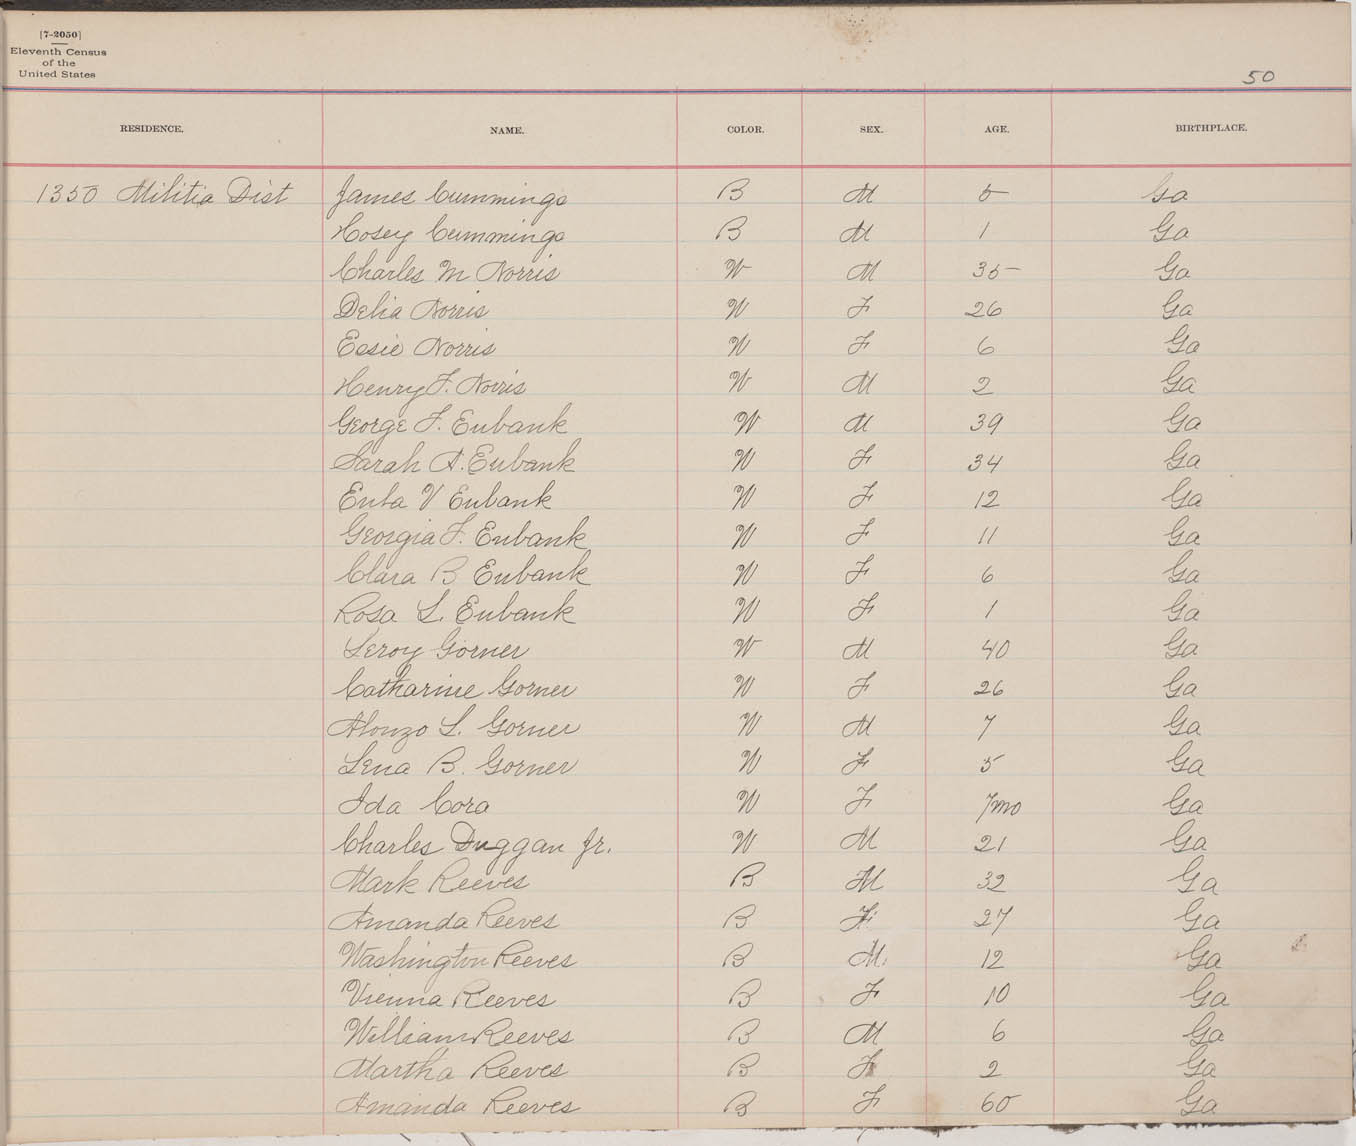 [7-2050]
Eleventh Census
of the
United States
50
RESIDENCE. NAME. COLOR. SEX. AGE. BIRTHPLACE.
1350 Militia Dist James Cummings B M 5 Ga
Hosey Cummings B M 1 Ga
Charles M Norris W M 35 Ga
Delia Norris W F 26 Ga
Essie Norris W F 6 Ga
Henry F. Norris W M 2 Ga
George F. Eubank W M 39 Ga
Sarah A. Eubank W F 34 Ga
Eula V Eubank W F 12 Ga
Georgia F. Eubank W F 11 Ga
Clara B Eubank W F 6 Ga
Rosa L. Eubank W F 1 Ga
Leroy Gorner W M 40 Ga
Catharine Gorner W F 26 Ga
Alonzo L. Gorner W M 7 Ga
Lena B. Gorner W F 5 Ga
Ida Cora W F 7mo Ga
Charles Duggan Jr. W M 21 Ga
Mark Reeves B M 32 Ga
Amanda Reeves B F 27 Ga
Washington Reeves B M 12 Ga
Vienna Reeves B F 10 Ga
William Reeves B M 6 Ga
Martha Reeves B F 2 Ga
Amanda Reeves B F 60 Ga